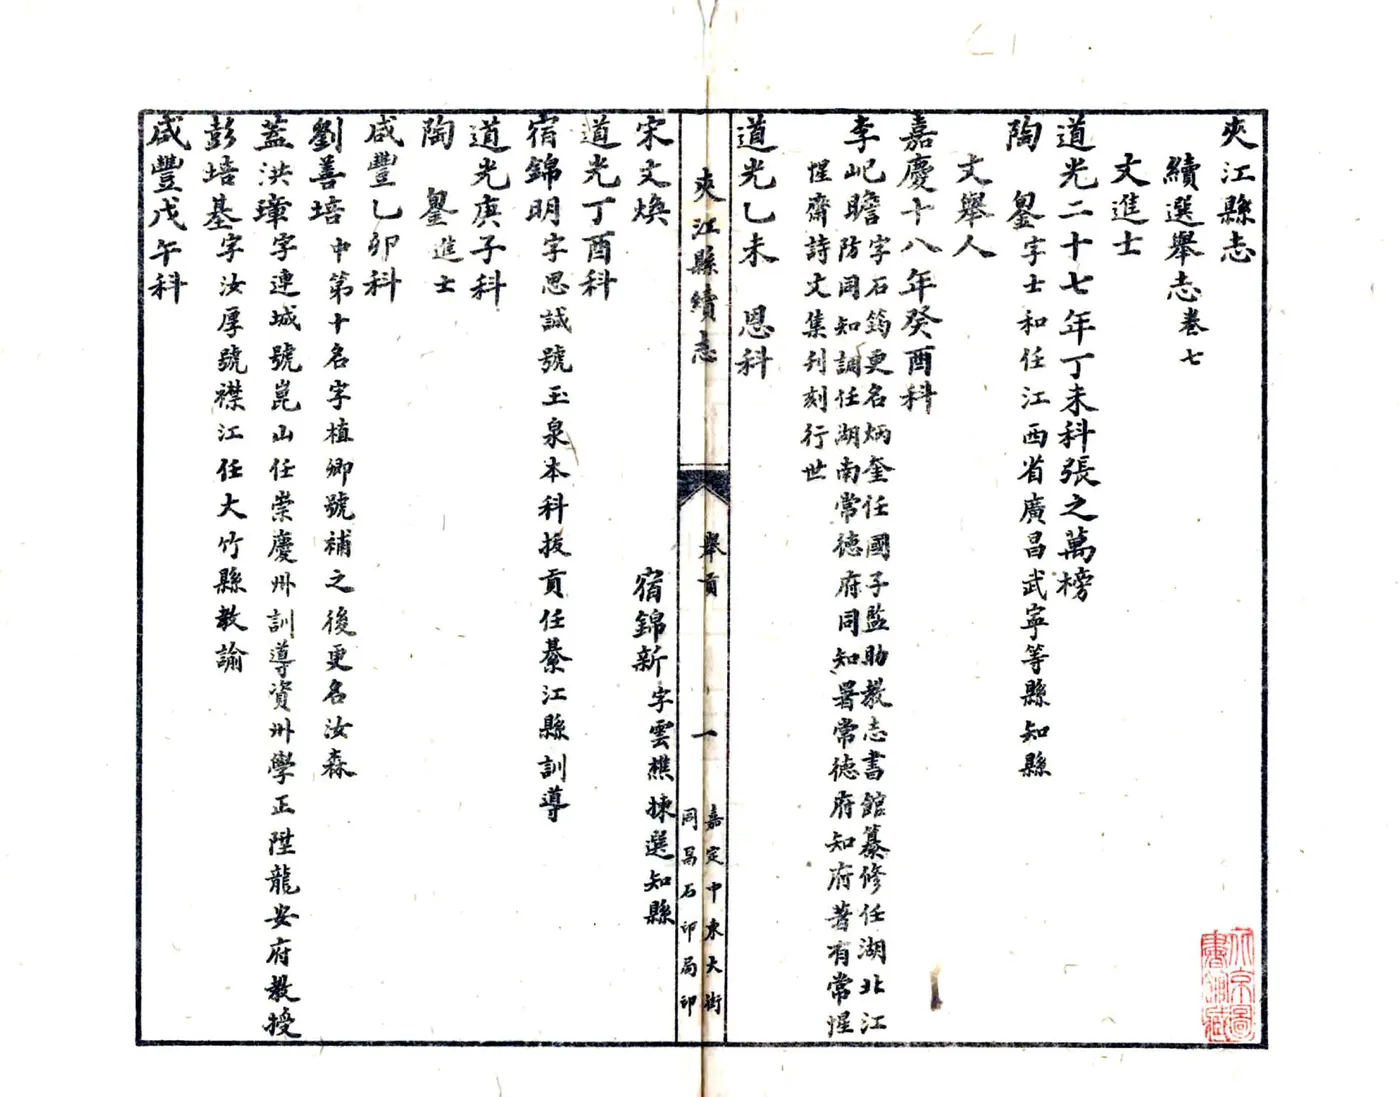 夾江縣志
續選舉志卷七
文進士
道光二十七年丁未科張之萬榜
陶 鋆字士和任江西省廣昌武寧等縣知縣
文舉人
嘉慶十八年癸酉科
李屺瞻字石筠更名炳奎任國子監助教志書館纂修任湖北江
防同知調任湖南常德府同知署常德府知府著有常惺
惺齋詩文集刋刻行世
道光乙未 恩科
夾江縣續志
舉貢
一
嘉定中東大街
同昌石印局印
宋文煥 宿錦新字雲樵揀選知縣
道光丁酉科
宿錦明字思誠號玉泉本科拔貢任綦江縣訓導
道光庚子科
陶 鋆進士
咸豐乙卯科
劉善培中第十名字植卿號補之後更名汝森
蓋洪璋字連城號崑山任崇慶州訓導資州學正陞龍安府教授
彭培基字汝厚號襟江任大竹縣教諭
咸豐戊午科